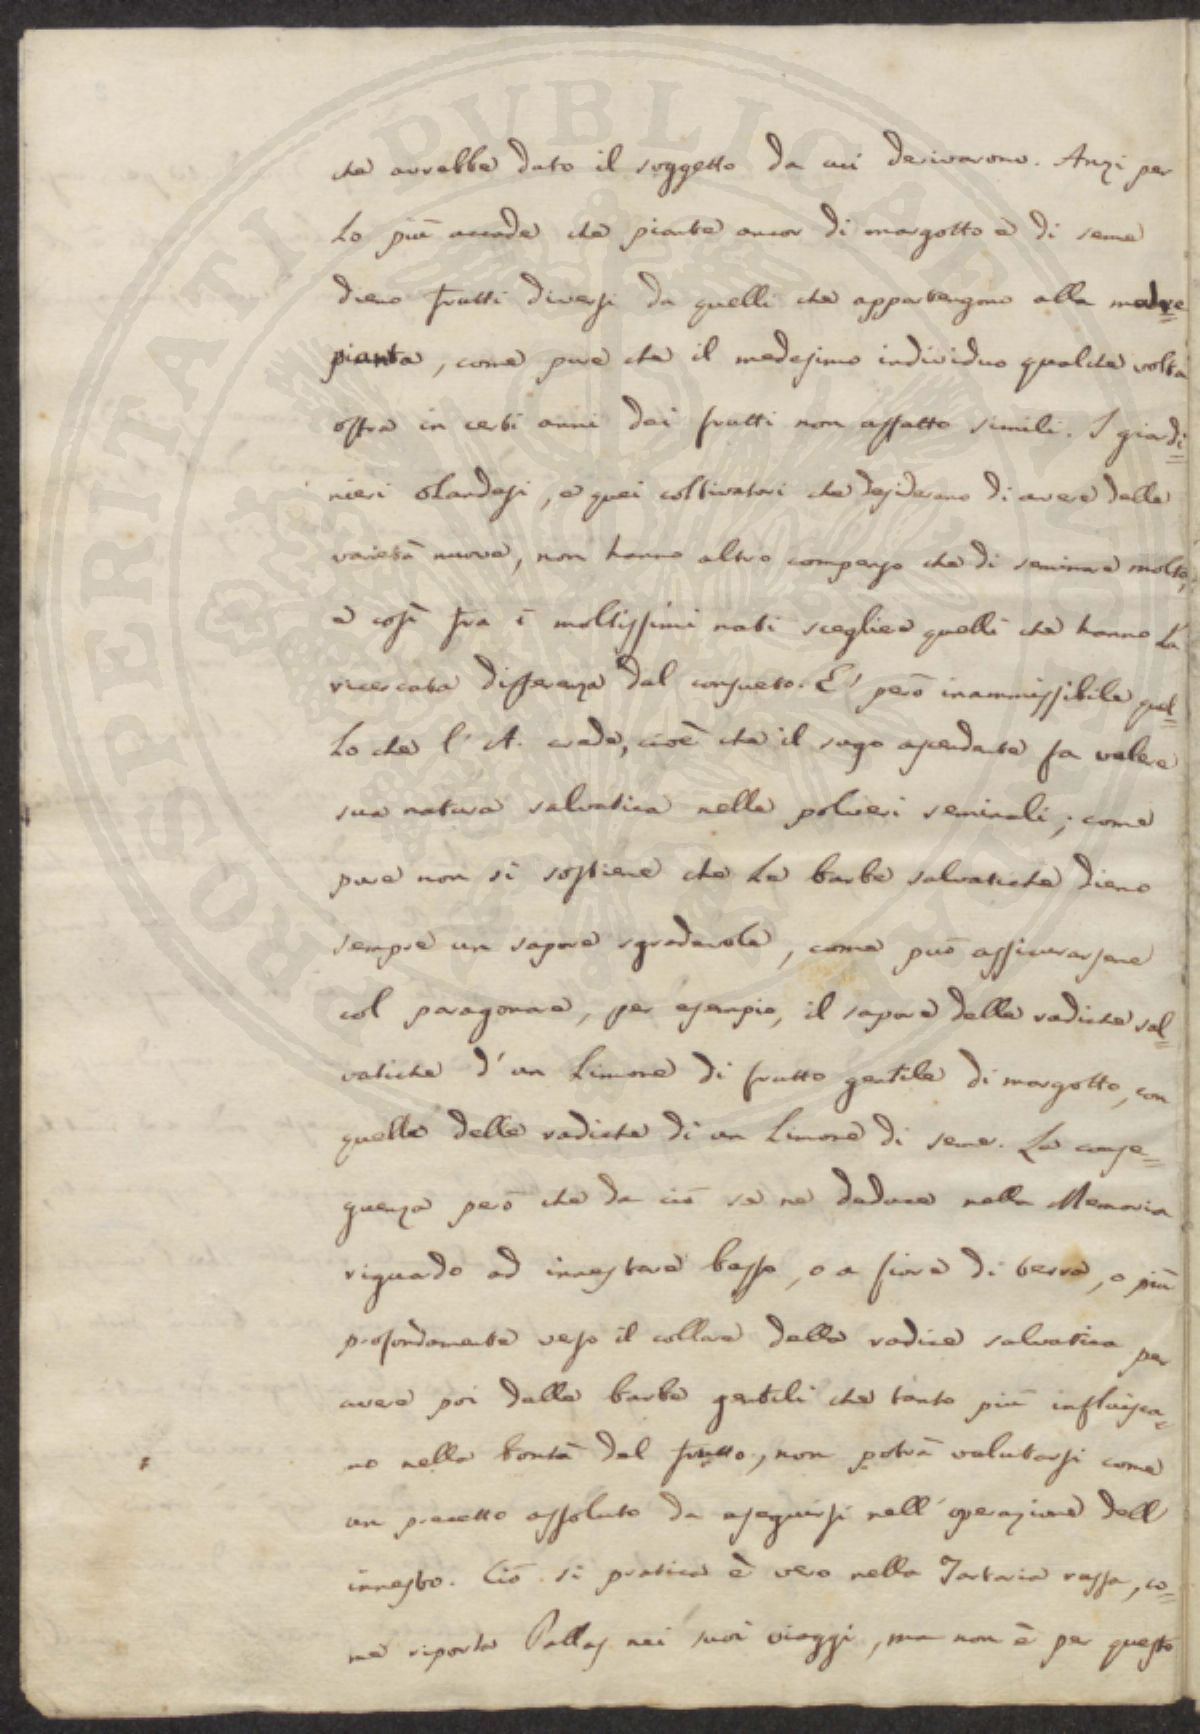 che avrebbe dato il soggetto da cui derivarono. Anzi per
lo più accade che piante ancor di margotto e di seme
dieno frutti diversi da quelli che appartengono alla madre
pianta, come pure che il medesimo individuo qualche volta
offra in certi anni dei frutti non affatto simili. I giardi=
nieri olandesi, e quei coltivatori che desiderano di avere delle
varietà nuove, non hanno altro compenso che di seminare molto,
e così fra i moltissimi nati sceglier quelli che hanno la
ricercata differenza dal consueto. E' però inammissibile quel=
lo che l'A. crede, cioè che il sugo ascendente fa valere
sua natura salvatica nelle polveri seminali; come
pure non si sostiene che le barbe salvatiche dieno
sempre un sapore sgradevole, come può assicurarsene
col paragonare, per esempio, il sapore delle radiche sal=
vatiche d'un Limone di frutto gentile di margotto, con
quello delle radiche di un Limone di seme. La conse=
guenza però che da ciò se ne deduce nella Memoria
riguardo ad innestare basso, o a fiore di terra, o più
profondamente verso il collare della radice salvatica per
avere poi delle barbe gentili che tanto più influisca=
no nella bontà del frutto, non potrà valutarsi come
un precetto assoluto da eseguirsi nell'operazione dell'
innesto. Ciò si pratica è vero nella Tartaria russa, co=
me riporta Pallas nei suoi viaggi, ma non è per questo
PROSPERITATI PUBLICAE